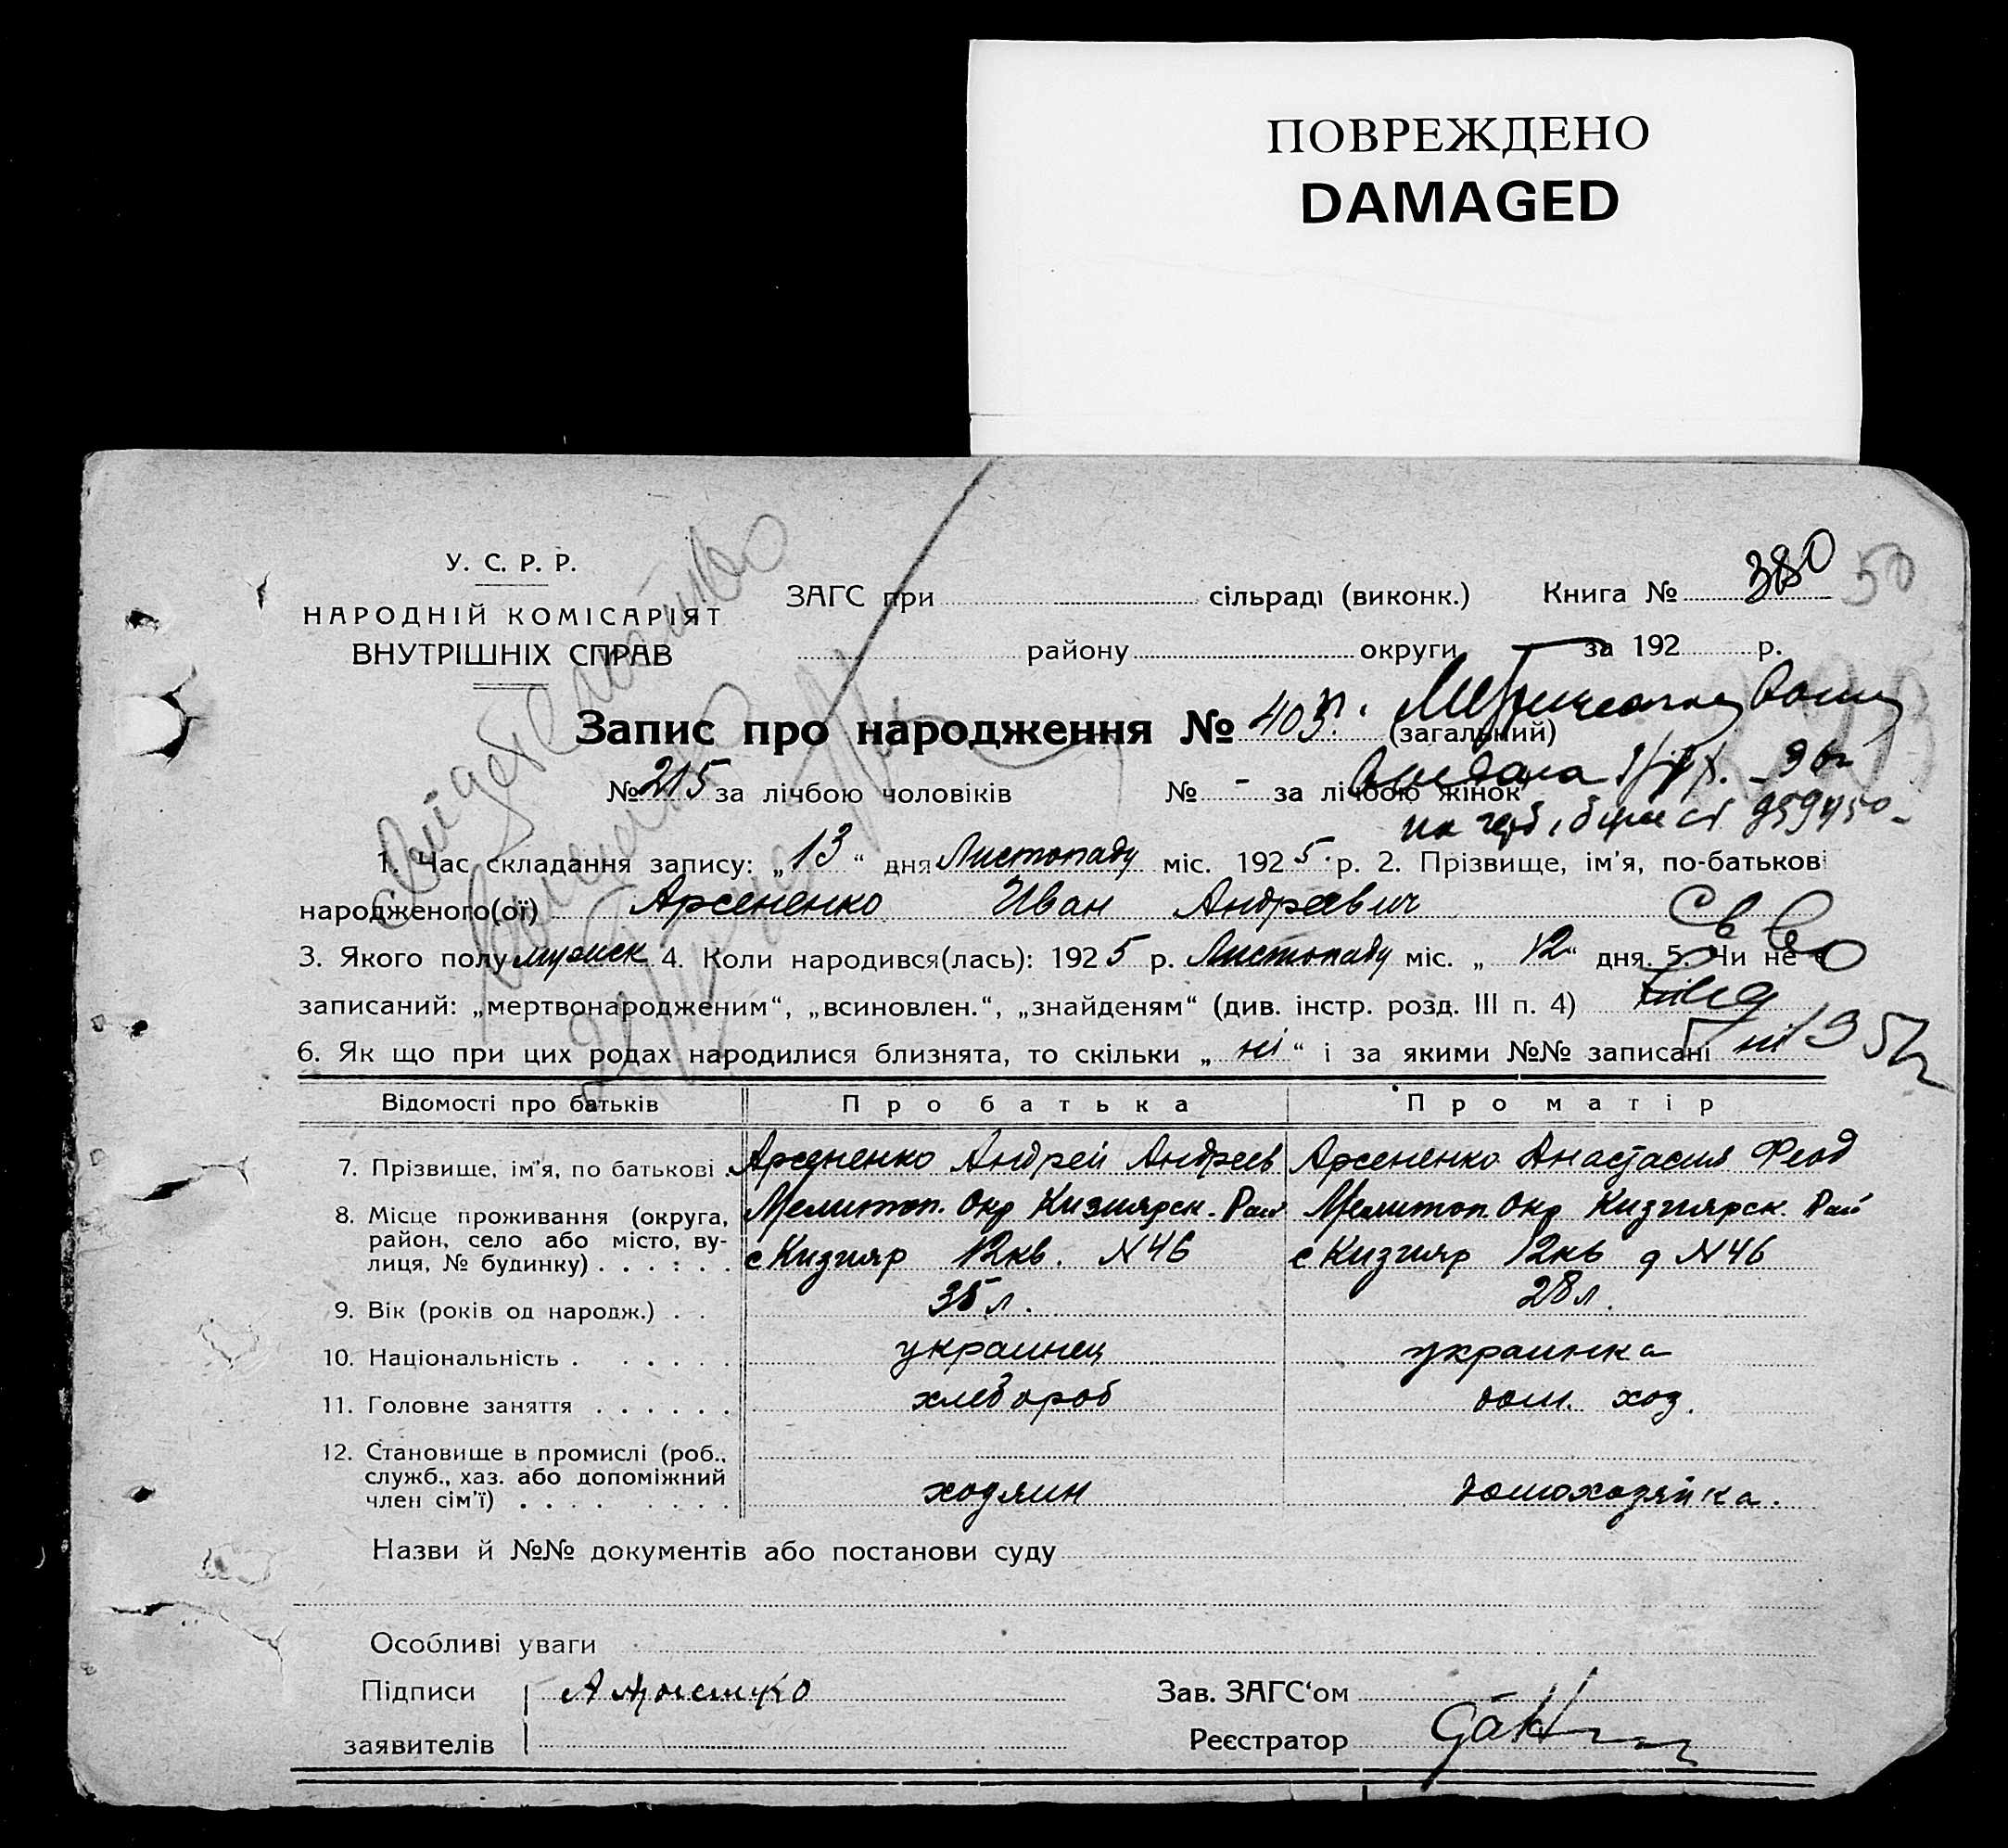 ПОВРЕЖДЕНО
DAMAGED
У. С. Р. Р.
НАРОДНІЙ КОМІСАРІЯТ
ВНУТРІШНІХ СПРАВ
ЗАГС при сільраді (виконк.) Книга № 380 50
району округи за 192 р.
Запис про народження № 403 (загальний)
№ 215 за лічбою чоловіків № - за лічбою жінок
1. Час складання запису: „13“ дня Листопаду міс. 1925 р. 2. Прізвище, ім'я, по-батькові
народженого(ої) Арсененко Иван Андреевич
3. Якого полу мужиск 4. Коли народився(лась): 1925 р. Листопаду міс. „12“ дня. 5. Чи не
записаний: „мертвонародженим“, „всиновлен.“, „знайденям“ (див. інстр. розд. III п. 4)
6. Як що при цих родах народилися близнята, то скільки „ні“ і за якими №№ записані ні
Відомості про батьків Про батька Про матір
7. Прізвище, ім'я, по батькові . Арсененко Андрей Андреев Арсененко Анастасия Феод
8. Місце проживання (округа, район, село або місто, вулиця, № будинку) . . . . . . Мелитоп. Окр Кизиярск. Рай Мелитоп. Окр Кизиярск. Рай
с Кизияр 12кв. N46 с Кизияр 12кв д N46
9. Вік (років од народж.) . . 35 л. 28 л.
10. Національність . . . . . . украинец украинка
11. Головне заняття . . . . . . хлебороб дом. хоз.
12. Становище в промислі (роб., служб., хаз. або допоміжний член сім'ї) . . . . . . . . . хозяин домохозяйка.
Назви й №№ документів або постанови суду
Особливі уваги
Підписи Зав. ЗАГС'ом
заявителів Реєстратор